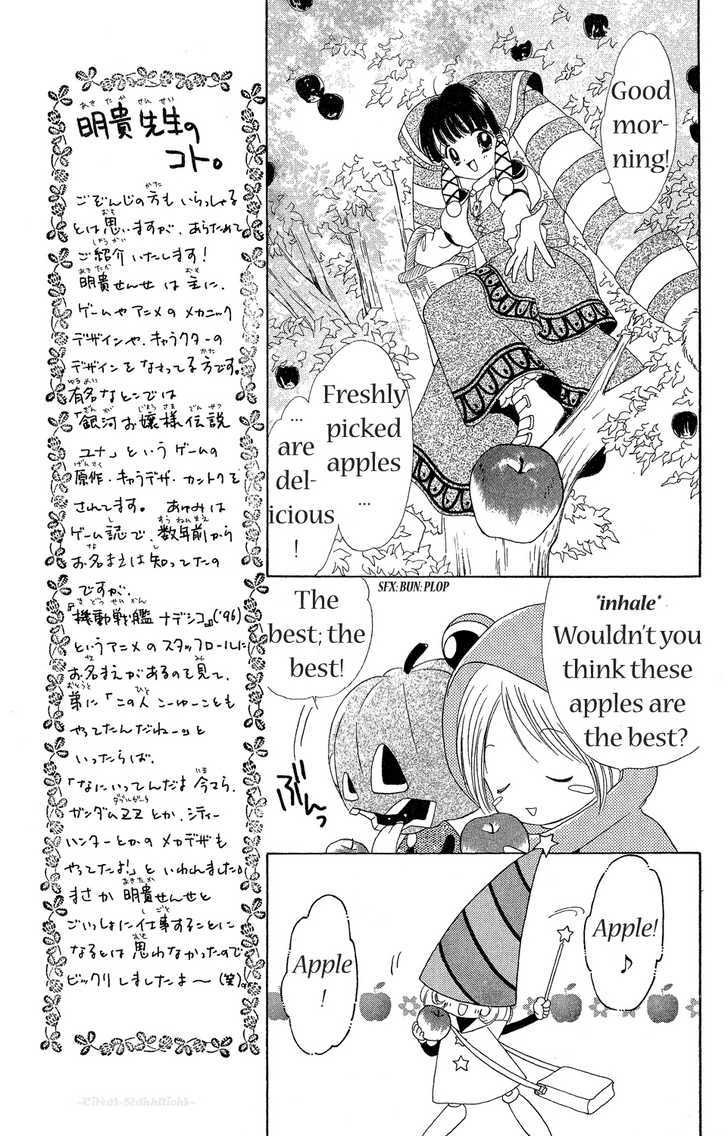 Good
mor-
ning!
Freshly
picked
apples
...
...
are
del-
icious
!
SFX: BUN: PLOP
*inhale*
Wouldn't you
think these
apples are
the best?
The
best; the
best!
ぶんっ
Apple!
♪
Apple
!
明貴先生の
コト。
ごぞんじの方もいらっしゃる
とは思いますが、あらためて
ご紹介いたします!
明貴せんせは主に、
ゲームやアニメのメカニック
デザインや、キャラクターの
デザインをなさってる方です。
有名なとこでは
「銀河お嬢様伝説
ユナ」というゲームの
原作・キャラデザ・カントクで
されてます。 あゆみは
ゲーム誌で、数年前から
お名まえは知ってたの
ですが、
『機動戦艦ナデシコ』('96)
というアニメのスタッフロールに
お名まえがあるので見て、
弟に「この人こーゆーことも
やってたんだねーっ」と
いったらば、
「なにいってんだよ今さら、
ガンダムZZとか、シティー
ハンターとかのメカデザも
やってたよ!」といわれました。
まさか 明貴せんせと
ごいっしょに仕事することに
なるとは思わなかったので
ビックリしましたよ〜(笑)。